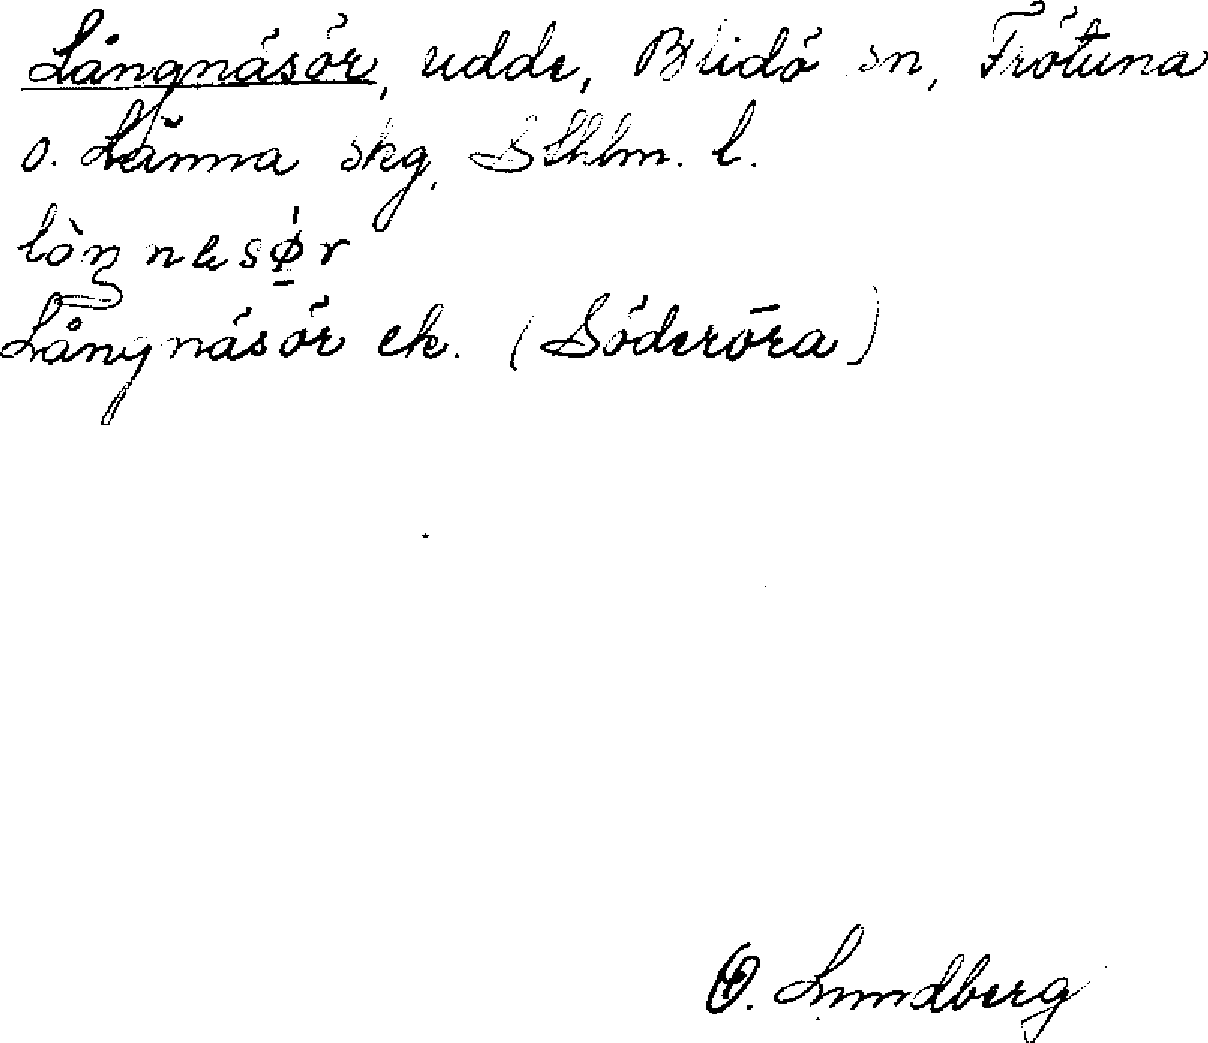 Långnäsör, udde, Blidö sn, Frötuna
o. Länna skg, Sthlm. l.
Långnäsör ek. (Söderöra)
O. Lundberg